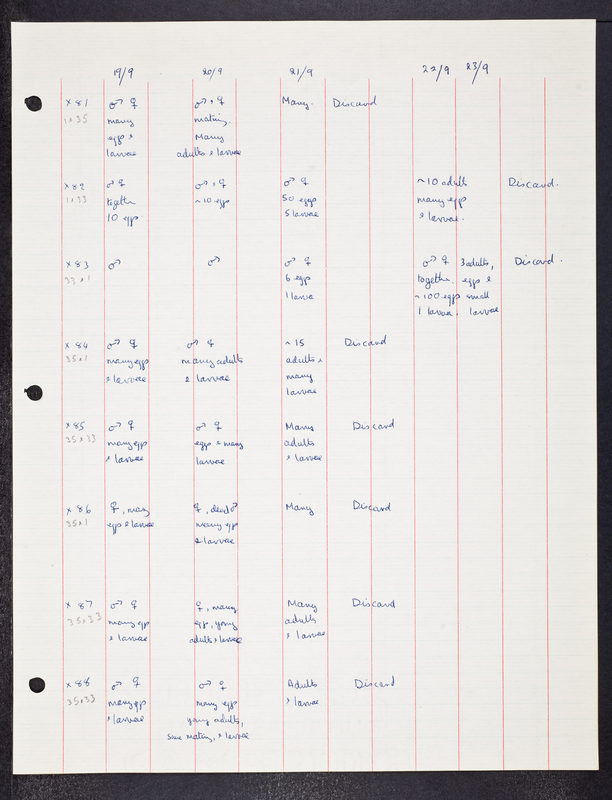 19/9 20/9 21/9 22/9 23/9
x 81 ♂ ♀ ♂ + ♀ Many. Discard
1x35 many mating.
eggs + Many
larvae adults & larvae
x 82 ♂ ♀ ♂ + ♀ ♂ ♀ ~10 adults Discard.
1x33 together ~10 eggs 50 eggs many eggs
10 eggs. 5 larvae & larvae.
x 83 ♂ ♂ ♂ ♀ ♂ ♀ 3 adults, Discard.
33x1 6 eggs together. eggs &
1 larva ~100 eggs small
1 larva. larvae
x 84 ♂ ♀ ♂ ♀ ~15 Discard
35x1 many eggs many adults adults &
& larvae & larvae many
larvae
x 85 ♂ ♀ ♂ ♀ Many Discard
35x33 many eggs eggs & many adults
& larvae larvae & larvae
x 86 ♀, many ♀, dead ♂ Many Discard
35x1 eggs & larvae many eggs
& larvae
x 87 ♂ ♀ ♀, many Many Discard
35x33 many eggs eggs, young adults
& larvae adults & larvae & larvae
x 88 ♂ ♀ ♂ ♀ Adults Discard
35x33 many eggs many eggs & larvae
& larvae young adults,
some mating, & larvae